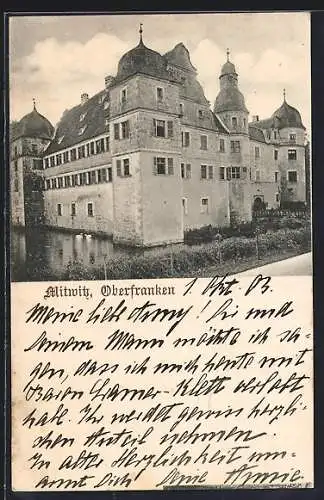 Mitwitz, Oberfranken 1. Okt. 03.
Meine liebe Anny! Dir und
Deinem Mann möchte ich sa-
gen, dass ich mich heute mit
Baron Cramer-Klett verlobt
habe. Ihr werdet gewiss herzli-
chen Anteil nehmen.
In alter Herzlichkeit um-
armt Dich Deine Annie.